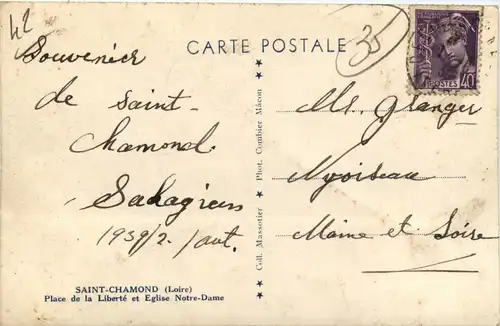 42
CARTE POSTALE
35
POSTES 40
Souvenir
de Saint-
Chamond.
1939/2. /aut.
Mr. Granger
Nyoiseau
Maine et Loire
★ ★ ★ Coll. Massotier ★ Phot. Combier Mâcon ★ ★ ★
SAINT-CHAMOND (Loire)
Place de la Liberté et Eglise Notre-Dame